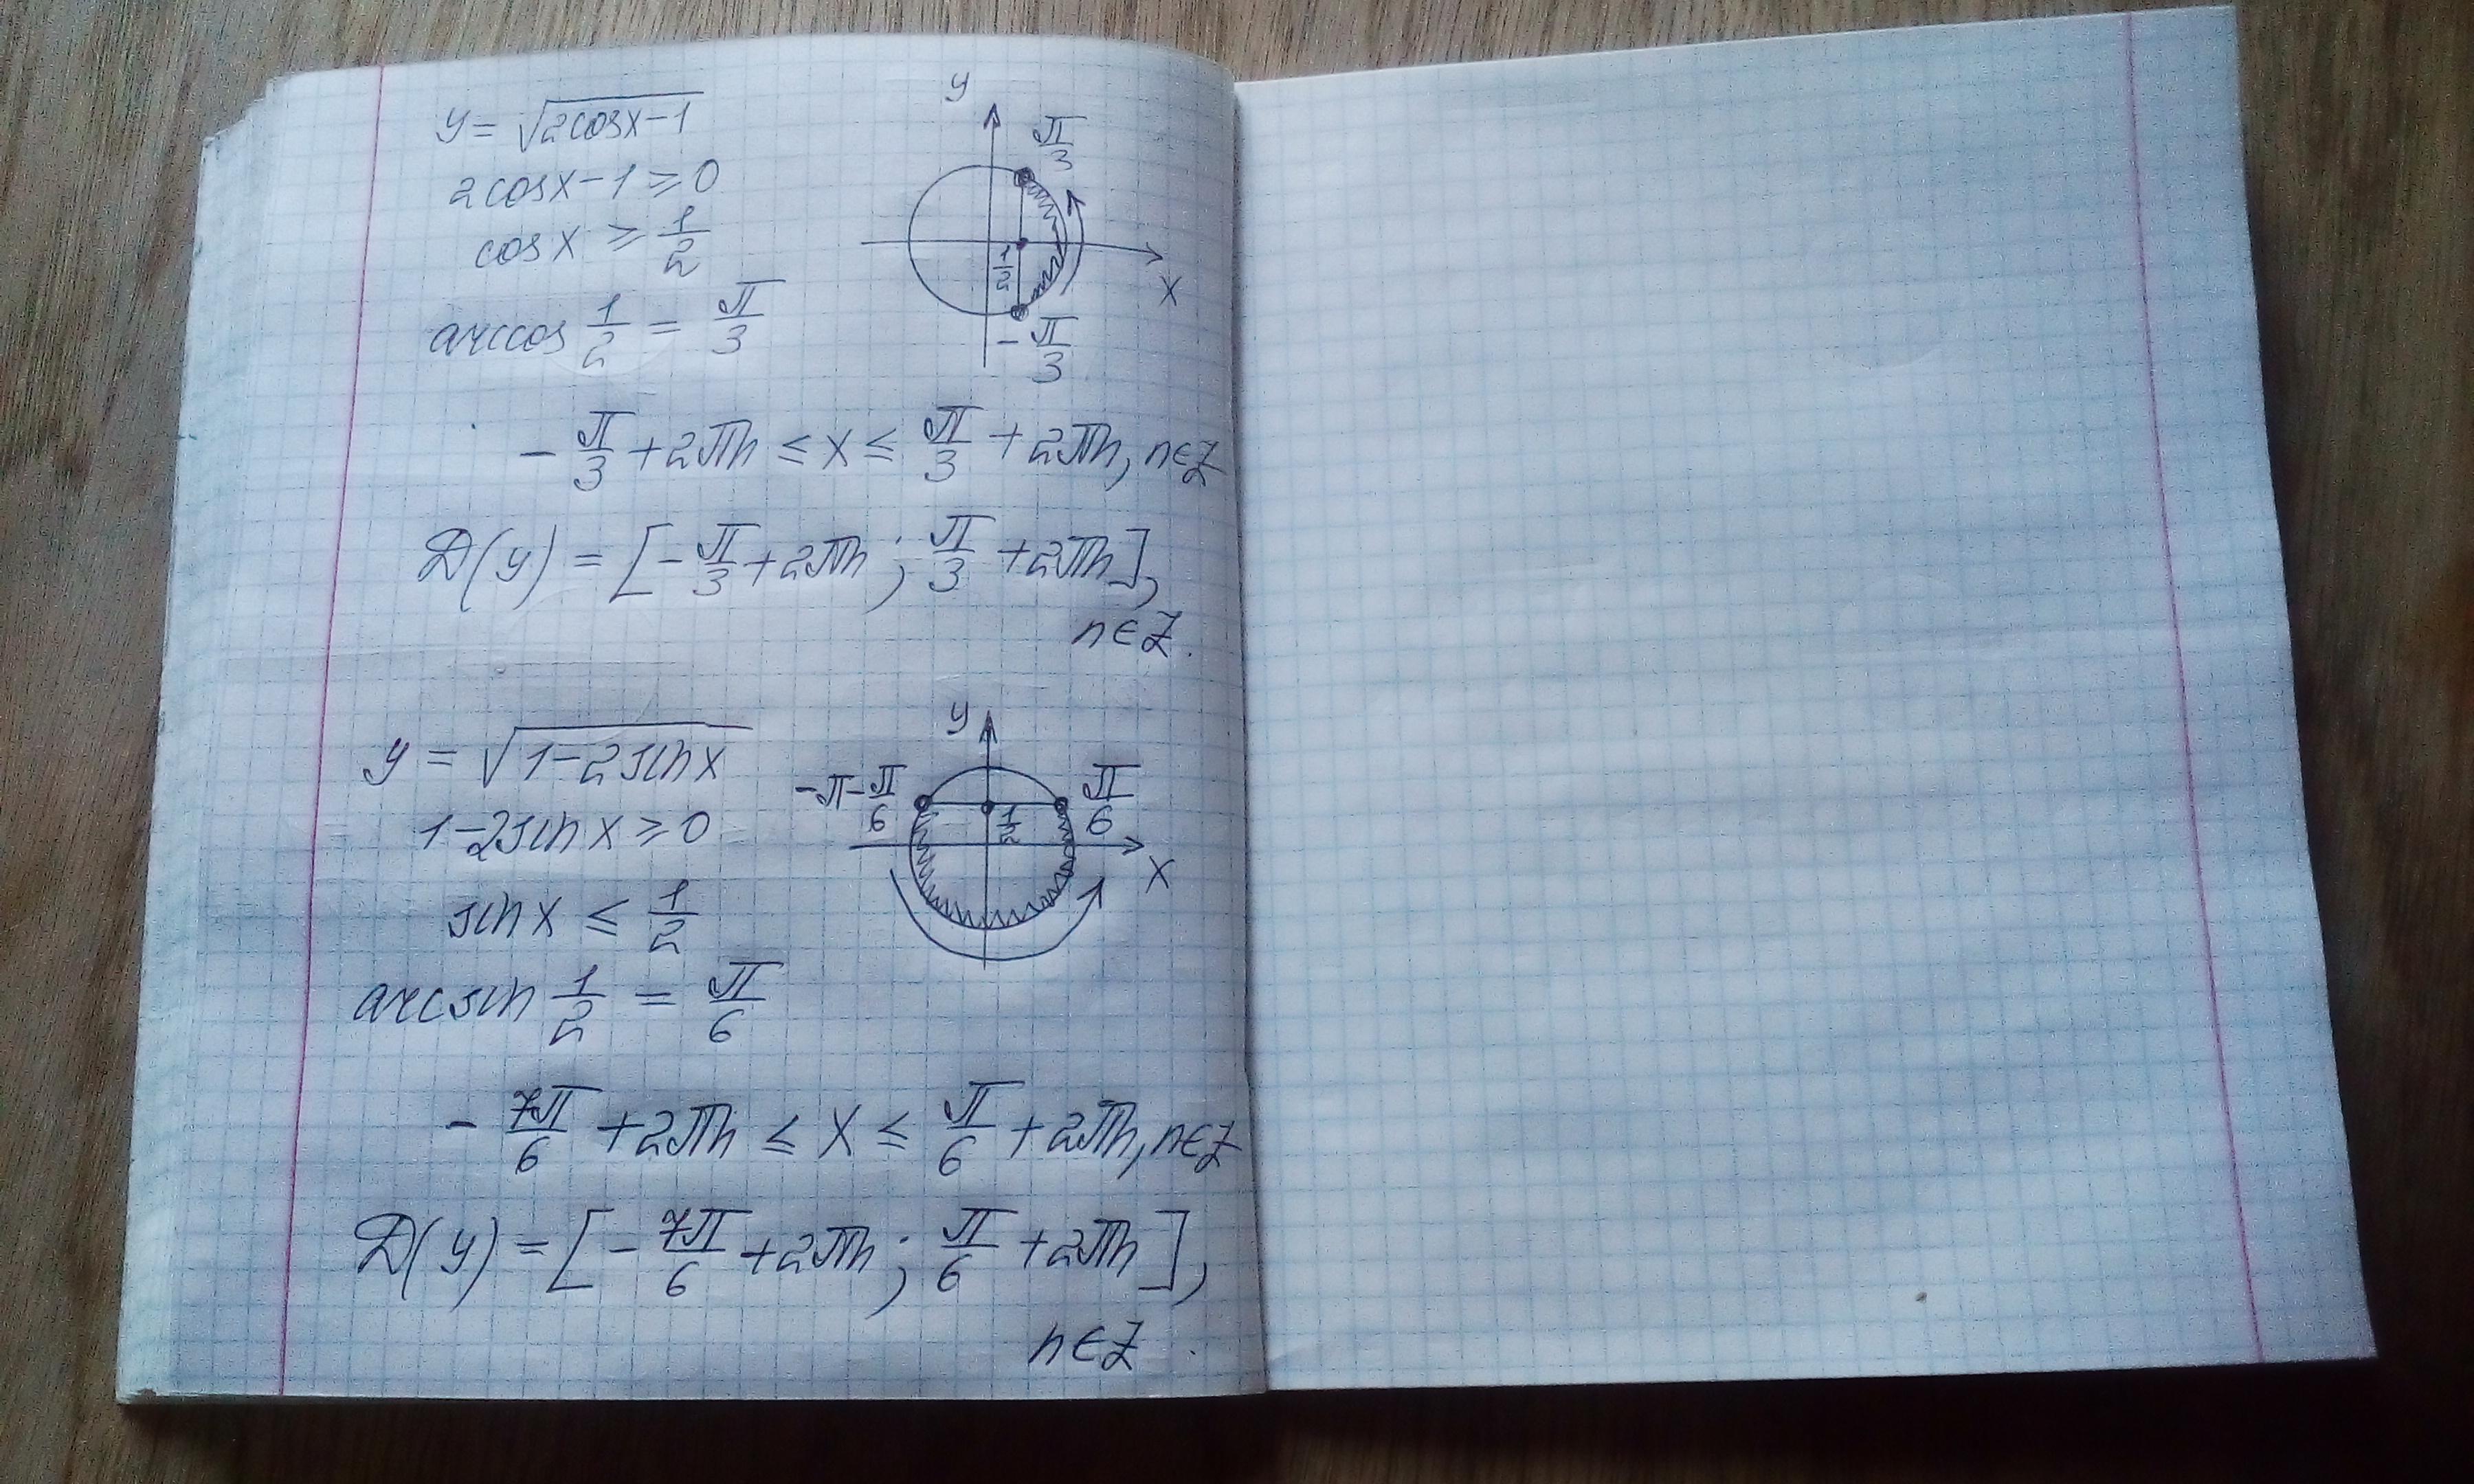 y = √(2cosx-1)
2cosx-1 ≥ 0
cosx ≥ 1/2
arccos 1/2 = π/3
y
π/3
1/2
x
-π/3
-π/3 + 2πn ≤ x ≤ π/3 + 2πn, n∈Z
D(y) = [-π/3 + 2πn ; π/3 + 2πn],
n∈Z.
y = √(1-2sinx)
1-2sinx ≥ 0
sinx ≤ 1/2
arcsin 1/2 = π/6
y
-π-π/6
π/6
1/2
x
-7π/6 + 2πn ≤ x ≤ π/6 + 2πn, n∈Z
D(y) = [-7π/6 + 2πn ; π/6 + 2πn],
n∈Z.